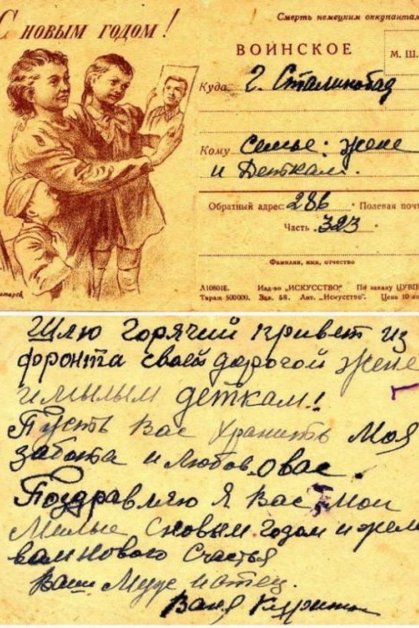 С НОВЫМ ГОДОМ!
Смерть немецким оккупантам
ВОИНСКОЕ
М. Ш.
Куда г. Сталинобад
Кому Семье: жене
и Деткам.
Обратный адрес: 286 • Полевая поч
Часть 323
Фамилия, имя, отчество
Изд-во „ИСКУССТВО“ По заказу
Тираж 500000. Зак. 58. „Искусство“. Цена
Шлю горячий привет из
фронта своей дорогой жене
и милым деткам!
Пусть Вас хранить Моя
забота и любовь о вас.
Поздравляю Я Вас Мои
Милые с новым годом и жел
вам нового счастья
Ваш Муж и отец.
Ваня